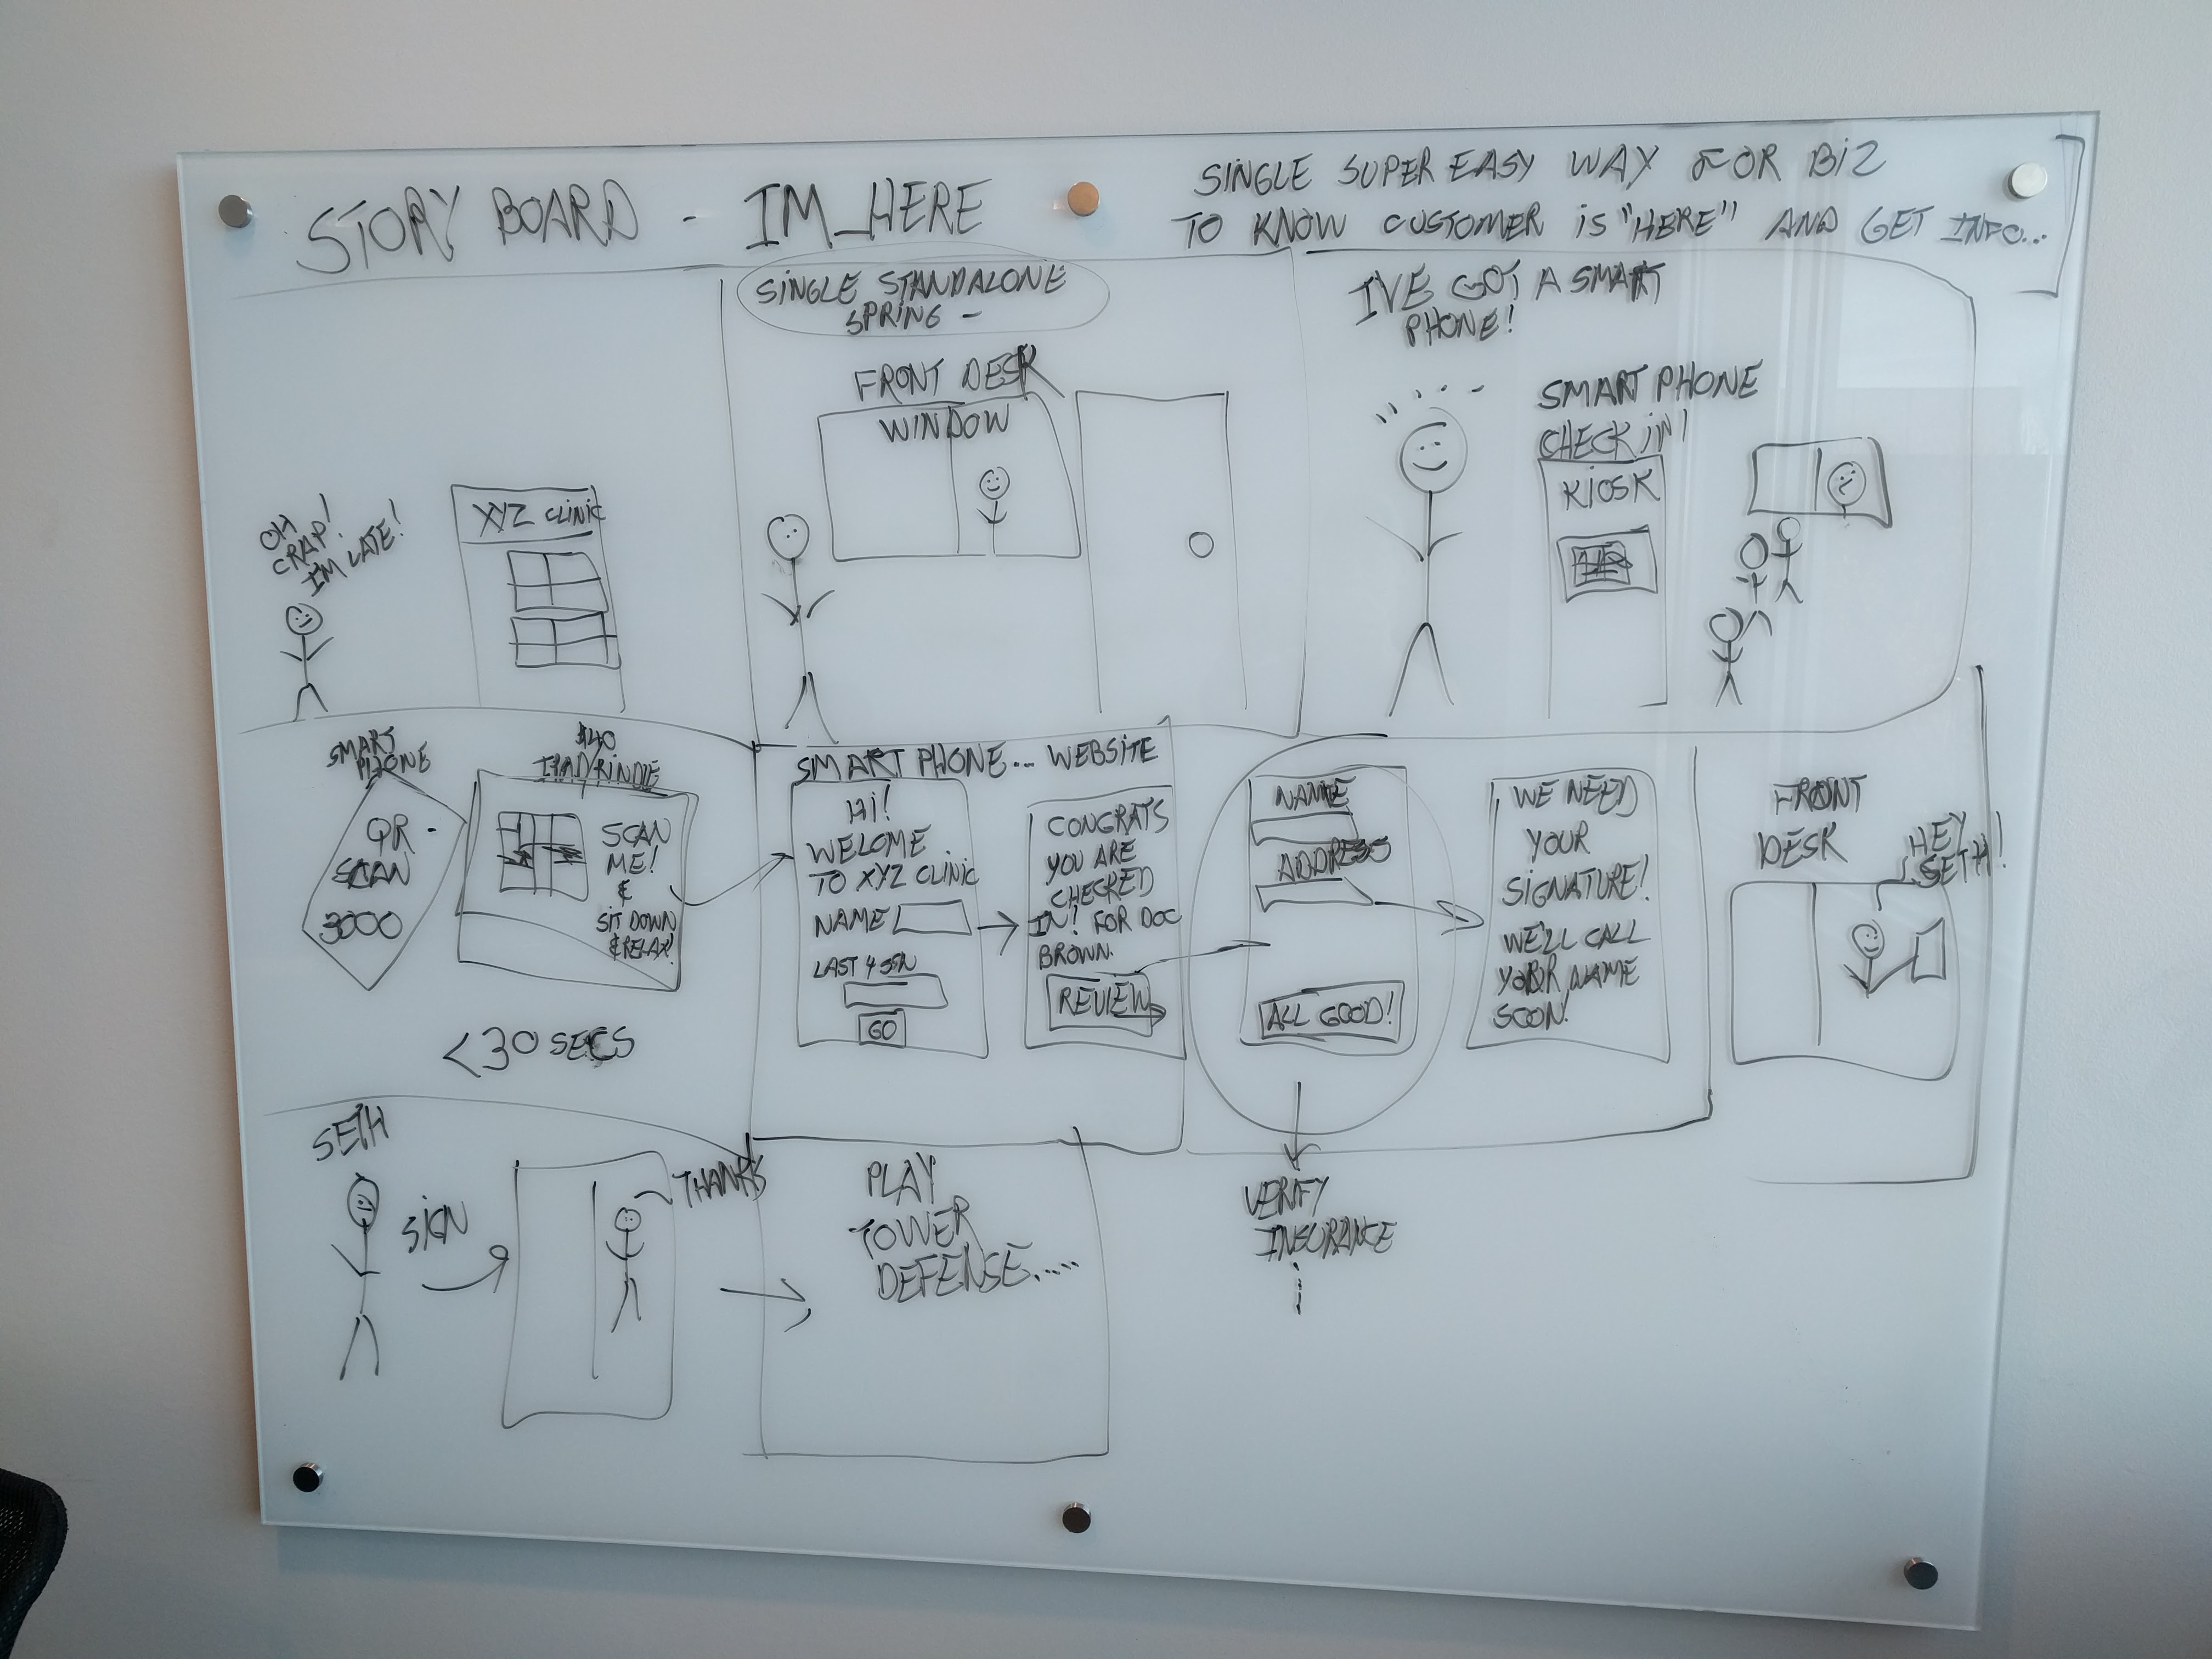 STORY BOARD - IM_HERE
SINGLE SUPER EASY WAY FOR BIZ
TO KNOW CUSTOMER IS "HERE" AND GET INFO...
OH
CRAP!
IM LATE!
XYZ CLINIC
SINGLE STANDALONE
SPRING -
FRONT DESK
WINDOW
I'VE GOT A SMART
PHONE!
SMART PHONE
CHECK IN!
KIOSK
SMART
PHONE
QR -
SCAN
3000
$40
SCAN
ME!
&
SIT DOWN
& RELAX!
<30 SECS
SMART PHONE... WEBSITE
HI!
WELOME
TO XYZ CLINIC
NAME
LAST 4 SSN
GO
CONGRATS
YOU ARE
CHECKED
IN! FOR DOC
BROWN.
REVIEW
NAME
ADDRESS
ALL GOOD!
VERIFY
INSURANCE
WE NEED
YOUR
SIGNATURE!
WE'LL CALL
YOUR NAME
SOON!
FRONT
DESK
HEY
SETH!
SETH
SIGN
THANKS
PLAY
TOWER
DEFENSE.....